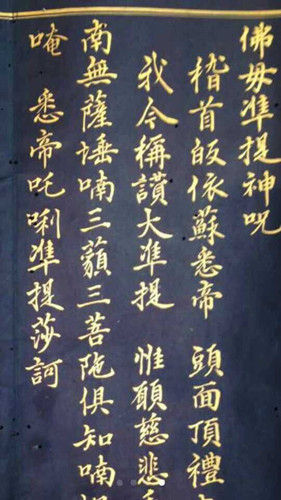 佛母準提神呪
稽首皈依蘇悉帝　頭面頂禮
我今稱讚大準提　惟願慈悲
南無薩埵喃三藐三菩陁俱知喃
唵　悉帝吒唎準提莎訶